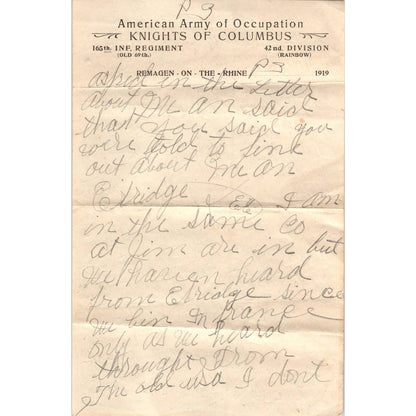 P 3
American Army of Occupation
KNIGHTS OF COLUMBUS
165th. INF. REGIMENT 42nd. DIVISION
(OLD 69th.) (RAINBOW)
REMAGEN - ON - THE - RHINE P 3 1919
asked in the letter
about Me an said
that you said you
were told to fink
out about Me an
Elridge I am
in the same Co
at Jim are in but
We haven heard
from Elridge since
We bin In france
only as We heard
throught From
The old usa I dont